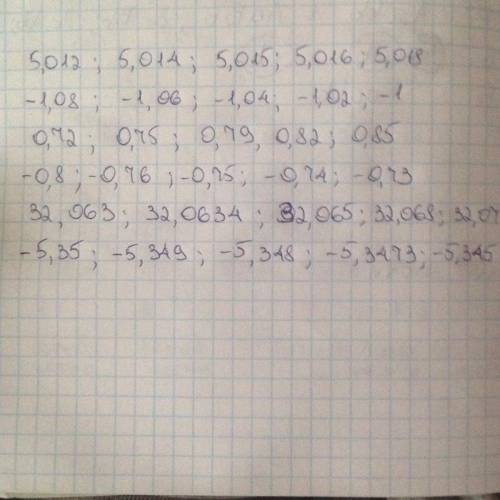 5,012 ; 5,014 ; 5,015 ; 5,016 ; 5,018
-1,08 ; -1,06 ; -1,04 ; -1,02 ; -1
0,72 ; 0,75 ; 0,79, 0,82 ; 0,85
-0,8 ; -0,76 ; -0,75 ; -0,74 ; -0,73
32,063 ; 32,0634 ; 32,065 ; 32,068 ; 32,07
-5,35 ; -5,349 ; -5,348 ; -5,3473 ; -5,345